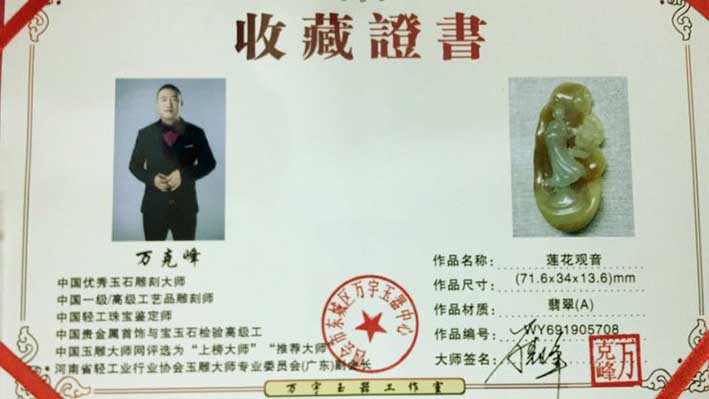 收藏證書
万克峰
中国优秀玉石雕刻大师
中国一级/高级工艺品雕刻师
中国轻工珠宝鉴定师
中国贵金属首饰与宝玉石检验高级工
中国玉雕大师网评选为“上榜大师”“推荐大师”
河南省轻工业行业协会玉雕大师专业委员会(广东)副会长
作品名称: 蓮花观音
作品尺寸: (71.6x34x13.6)mm
作品材质: 翡翠(A)
作品编号: WY691905708
大师签名:
万克峰
会市东城区万宇玉器中心
万宇玉器工作室